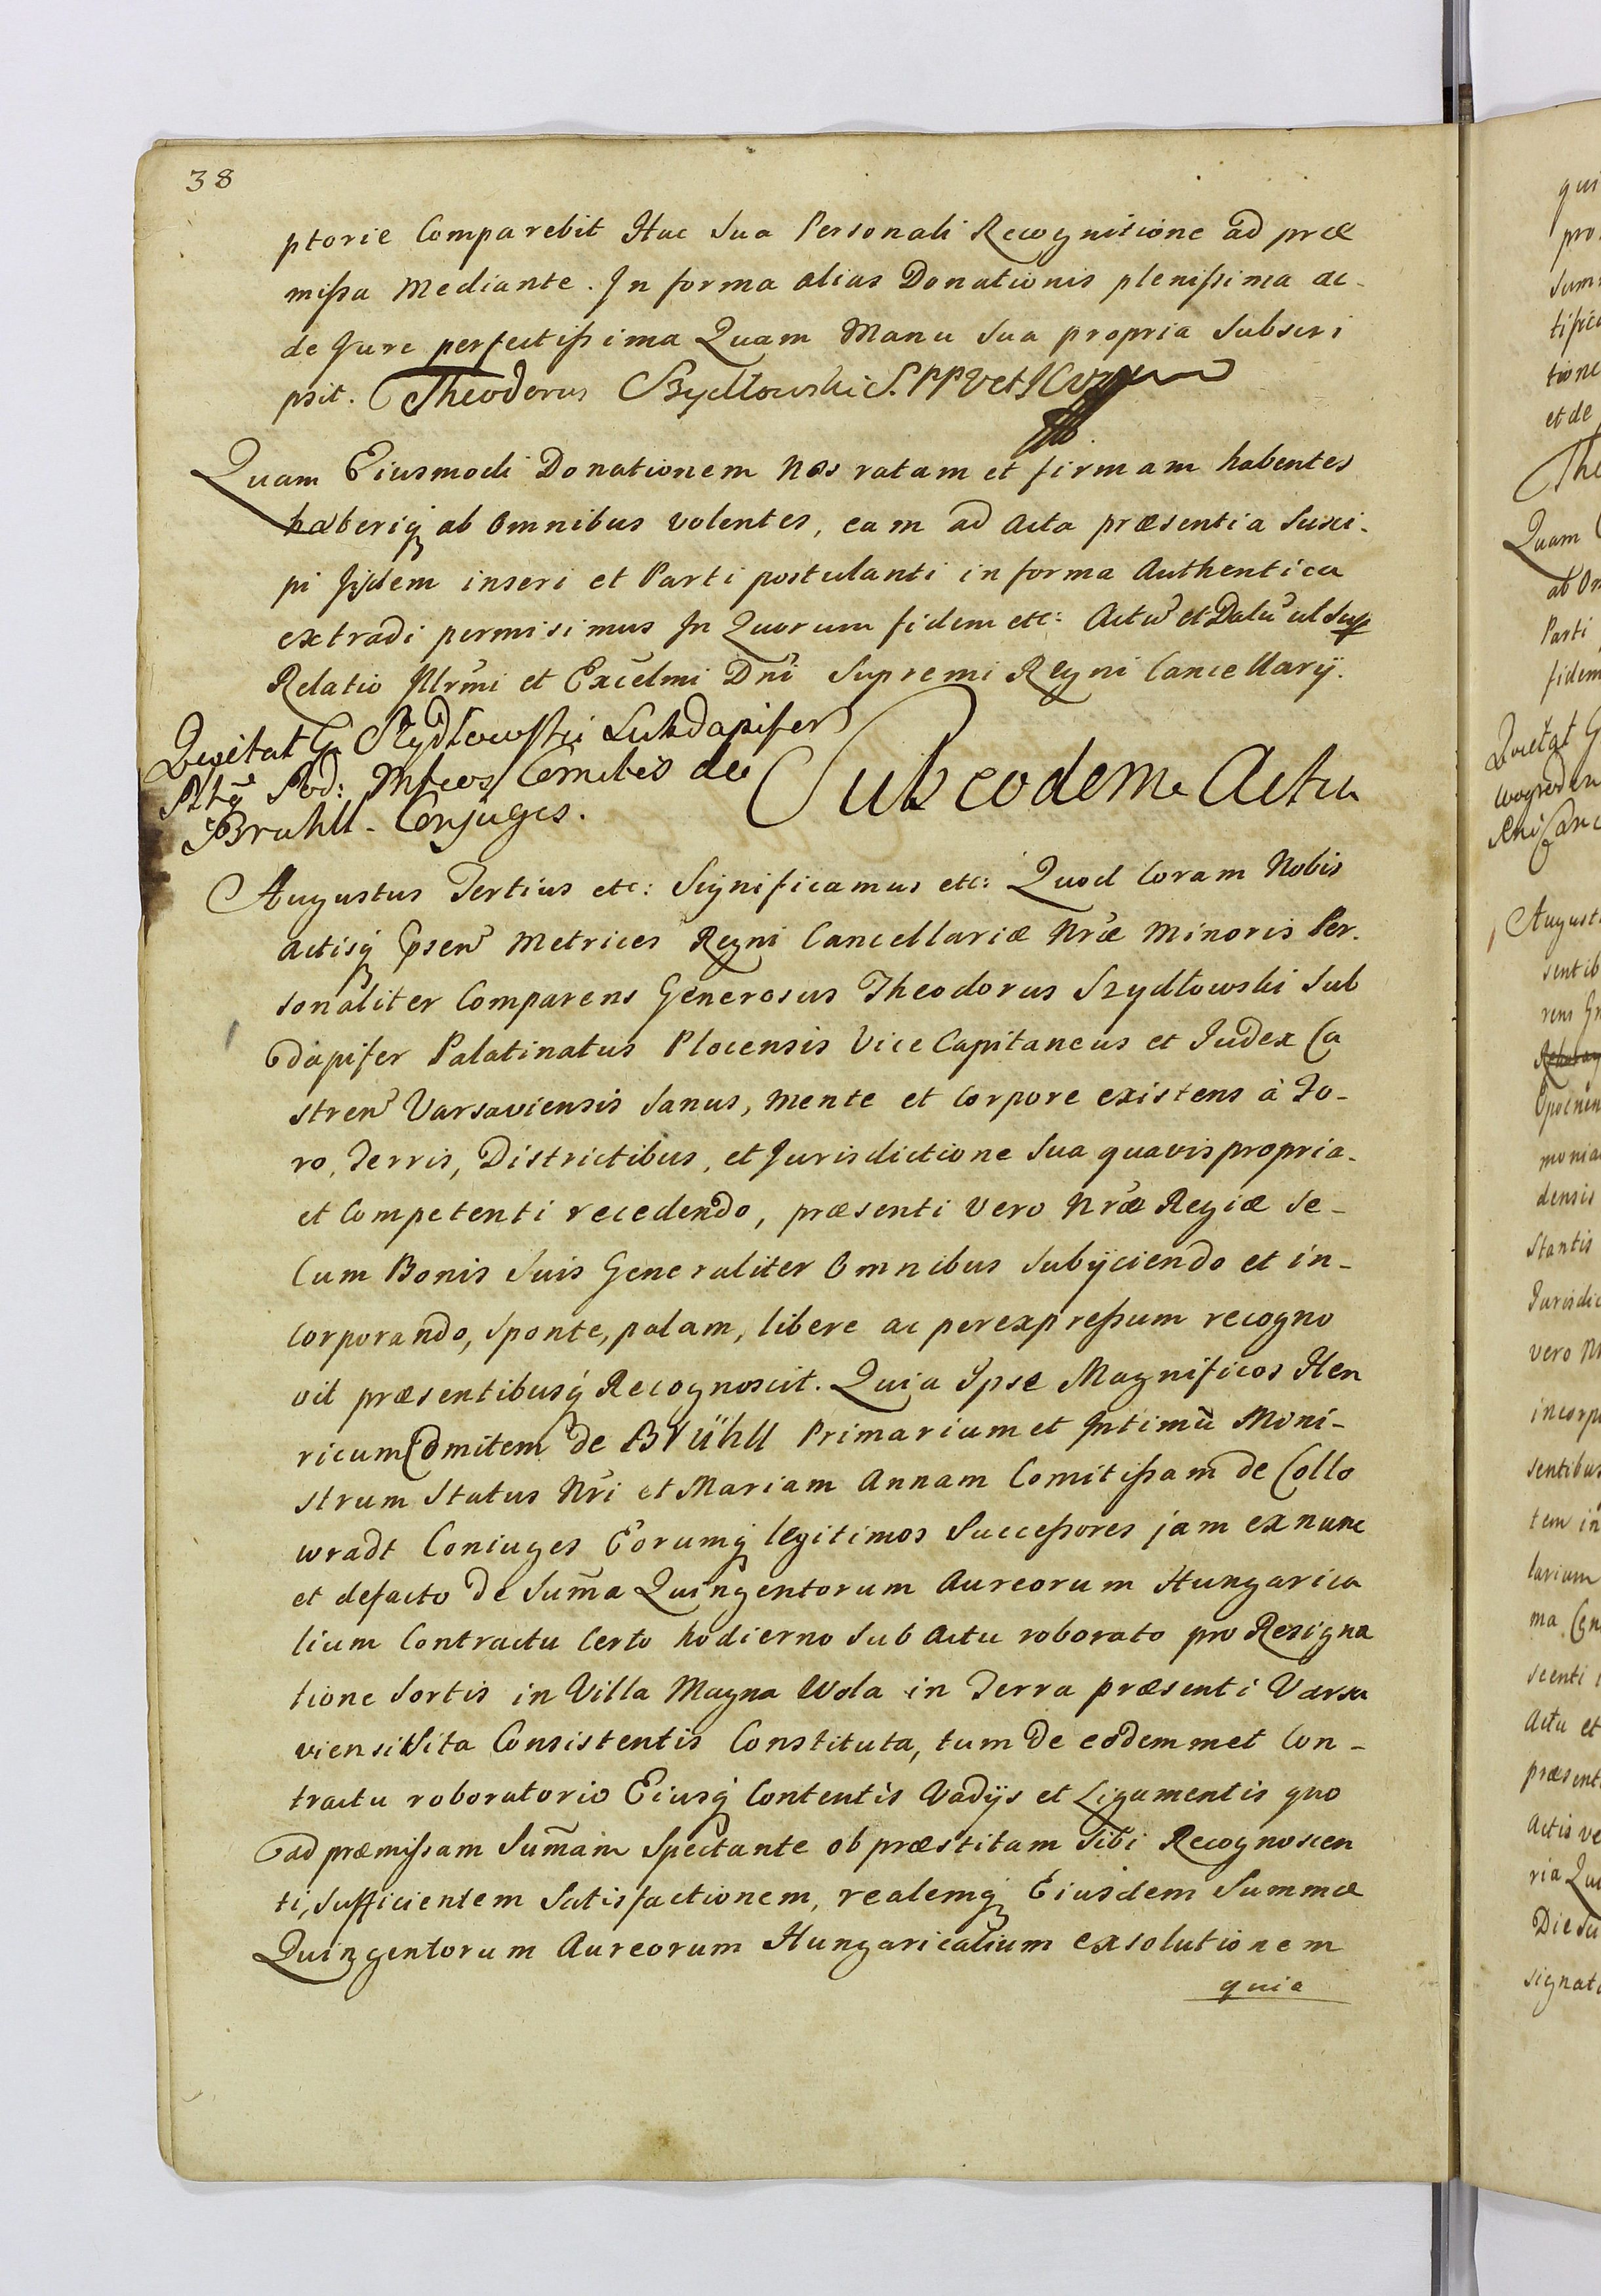 38
ptorie Comparebit Hac Sua Personali Recognitione ad præ
missa Mediante. In forma alias Donationis plenissima ac-
de Jure perfectissima Quam Manu Sua propria Subscri
psit. Theodorus Szydłowski S.PP
Quam Eiusmodi Donationem Nos ratam et firmam habentes
haberiq ab Omnibus volentes, eam ad Acta præsentia Susci-
pi Ijsdem inseri et Parti postulanti in forma Authentica
extradi permisimus In Quorum fidem etc: Actũ et Datũ ut Sup
Relatio Illrmi et Excelmi Dni Supremi Regni Cancellarij.
Quietat G. Szydłowski Subdapifer
Mfcos Comites de
Bruhll Conjuges.
Sub eodem Actu
Augustus Tertius etc: Significamus etc: Quod Coram Nobis
actisq Metrices Regni Cancellariæ Nræ Minoris Per-
sonaliter Comparens Generosus Theodorus Szydłowski Sub
dapifer Palatinatus Plocensis Vice Capitaneus et Judex Ca
stren Varsaviensis Sanus, mente et Corpore existens à Fo-
ro, Terris, Districtibus, et Jurisdictione Sua quavis propria-
et Competenti recedendo, præsenti vero Nræ Regiæ Se-
Cum Bonis Suis Generaliter Omnibus Subijciendo et in-
corporando, Sponte, palam, libere ac perexpressum recogno
vit præsentibusq Recognoscit. Quia Ipse Magnificos Hen
ricum Comitem de Brühll Primarium et Intimũ Moni-
strum Status Nri et Mariam Annam Comitissam de Collo
wradt Coniuges Eorumq legitimos Successores jam ex nunc
et defacto de Suma Quingentorum Aureorum Hungarica
lium Contractu Certo hodierno Sub Actu roborato pro Resigna
tione Sortis in Villa Magna Wola in Terra præsenti Varsa
viensi Sita Consistentis Constituta, tum de eodemmet Con-
tractu roboratorio Eiusq Contentis Vadijs et Ligamentis quo
ad præmissam Sumam Spectante ob præstitam Sibi Recognoscen
ti, Sufficientem Satisfactionem, realemq Eiusdem Summæ
Quingentorum Aureorum Hungaricalium exsolutionem
quie
qui
pro
tione
et de
The
Quam
ab Om
Parti
fidem
Quietat G
August
sentib
rens
monia
densis
Stantis
Jurisdic
vero
incorp
sentibus
tem in
larium
ma
scenti
Actu et
præsent
Actis ve
ria
signat